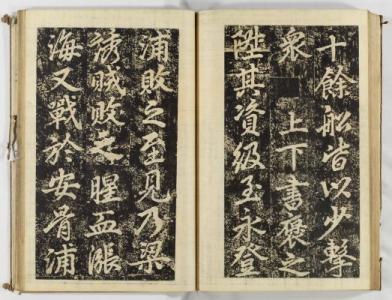 十餘船皆以少擊
衆 上下書褒之
陞其資級至永登
浦敗之至見乃梁
誘賊敗之腥血漲
海又戰於安骨浦